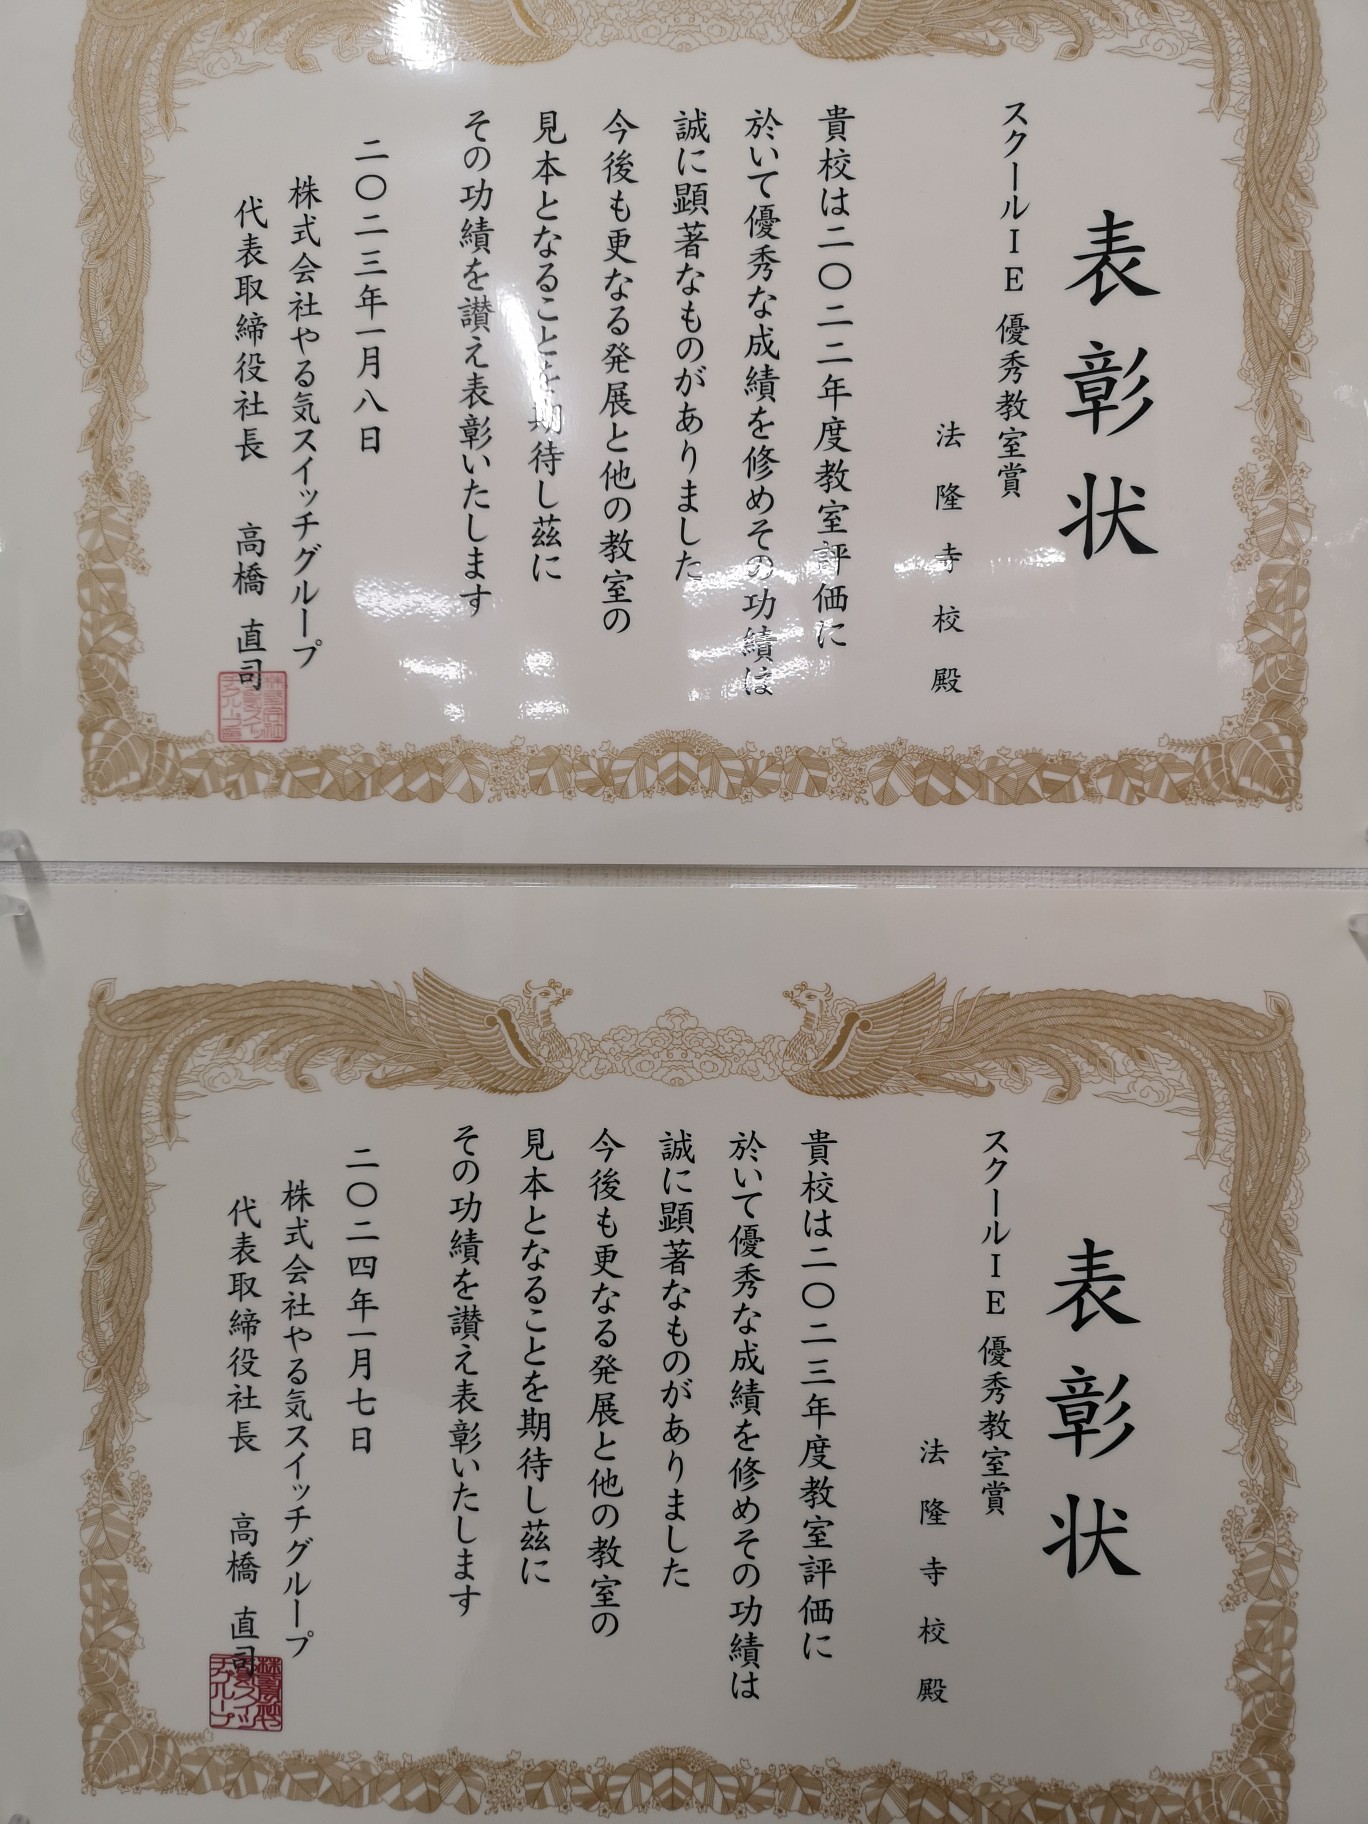 表彰状
スクールIE 優秀教室賞
法隆寺校殿
貴校は二〇二二年度教室評価に
於いて優秀な成績を修めその功績は
誠に顕著なものがありました
今後も更なる発展と他の教室の
見本となることを期待し茲に
その功績を讃え表彰いたします
二〇二三年一月八日
株式会社やる気スイッチグループ
代表取締役社長 高橋 直司
表彰状
スクールIE 優秀教室賞
法隆寺校殿
貴校は二〇二三年度教室評価に
於いて優秀な成績を修めその功績は
誠に顕著なものがありました
今後も更なる発展と他の教室の
見本となることを期待し茲に
その功績を讃え表彰いたします
二〇二四年一月七日
株式会社やる気スイッチグループ
代表取締役社長 高橋 直司